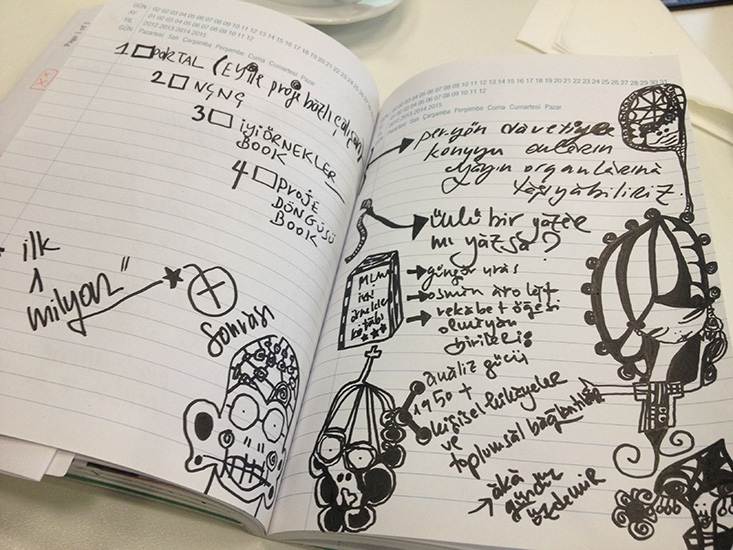 Page 1 of 1
GÜN 01 02 03 04 05 06 07 08 09 10 11 12 13 14 15 16 17 18 19 20 21 22 23 24 25 26 27 28 29 30 31
AY 01 02 03 04 05 06 07 08 09 10 11 12
YIL 2012-2013-2014-2015
GÜN Pazartesi Salı Çarşamba Perşembe Cuma Cumartesi Pazar
1 PORTAL (EYile proje bazlı çalışan)
2 NGNG
3 iyiÖRNEKLER
BOOK
4 PROJE
DÖNGÜSÜ
BOOK
ilk
1
milyar"
Sonrası
06 07 08 09 10 11 12 13 14 15 16 17 18 19 20 21 22 23 24 25 26 27 28 29 30 31
02 03 04 05 06 07 08 09 10 11 12
2012-2013-2014-2015
Salı Çarşamba Perşembe Cuma Cumartesi Pazar
peryön davetiyle
konuyu onların
yayın organlarına
taşıyabiliriz.
ünlü bir yazar
mı yazsa?
güngör uras
osman arolat
rekabet öğesi
olmayan
birileri:
örnekler
kitabı
analiz gücü
1950 +
kişisel hikayeler
ve
toplumsal bağlantılar
aka
gündüz
özdemir